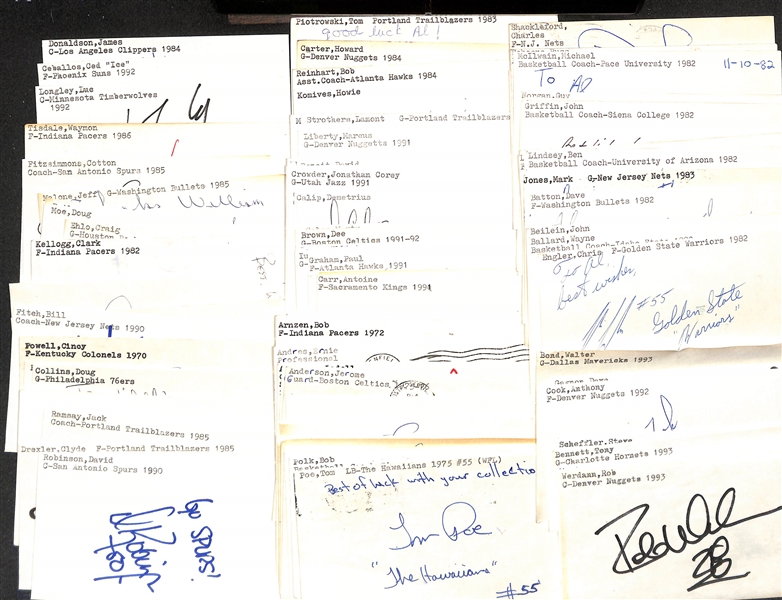 Donaldson,James
C-Los Angeles Clippers 1984
Ceballos,Ced "Ice"
F-Phoenix Suns 1992
Longley,Luc
C-Minnesota Timberwolves
1992
Tisdale,Waymon
F-Indiana Pacers 1986
Fitzsimmons,Cotton
Coach-San Antonio Spurs 1985
Malone,Jeff G-Washington Bullets 1985
Moe,Doug
Ehlo,Craig
G-Houston
Kellogg,Clark
F-Indiana Pacers 1982
Fitch,Bill
Coach-New Jersey Nets 1990
Powell,Cincy
F-Kentucky Colonels 1970
Collins,Doug
G-Philadelphia 76ers
Ramsay,Jack
Coach-Portland Trailblazers 1985
Drexler,Clyde F-Portland Trailblazers 1985
Robinson,David
C-San Antonio Spurs 1990
Go Spurs!
Piotrowski,Tom Portland Trailblazers 1983
good luck Al!
Carter,Howard
G-Denver Nuggets 1984
Reinhart,Bob
Asst.Coach-Atlanta Hawks 1984
Komives,Howie
M Strothers,Lamont G-Portland Trailblazers
Liberty,Marcus
G-Denver Nuggetts 1991
Crowder,Jonathan Corey
G-Utah Jazz 1991
Calip,Demetrius
Brown,Dee
G-Boston Celtics 1991-92
Graham,Paul
F-Atlanta Hawks 1991
Carr,Antoine
F-Sacramento Kings 1991
Arnzen,Bob
F-Indiana Pacers 1972
Andres,Ernie
Professional
Anderson,Jerome
Guard-Boston Celtics
Polk,Bob
Poe,Tom LB-The Hawaiians 1975 #55 (WFL)
Best of luck with your collection
Tom Poe
"The Hawaiians"
#55
Shackleford,
Charles
F-N.J. Nets
Rollwain,Michael
Basketball Coach-Pace University 1982
11-10-82
To Al
Morgan,Guy
Griffin,John
Basketball Coach-Siena College 1982
Lindsey,Ben
Basketball Coach-University of Arizona 1982
Jones,Mark G-New Jersey Nets 1983
Batton,Dave
F-Washington Bullets 1982
Beilein,John
Ballard,Wayne
Engler,Chris F-Golden State Warriors 1982
To Al,
best wishes,
#55
Golden State
"Warriors"
Bond,Walter
G-Dallas Mavericks 1993
Cook,Anthony
F-Denver Nuggets 1992
Scheffler,Steve
Bennett,Tony
G-Charlotte Hornets 1993
Werdann,Rob
C-Denver Nuggets 1993